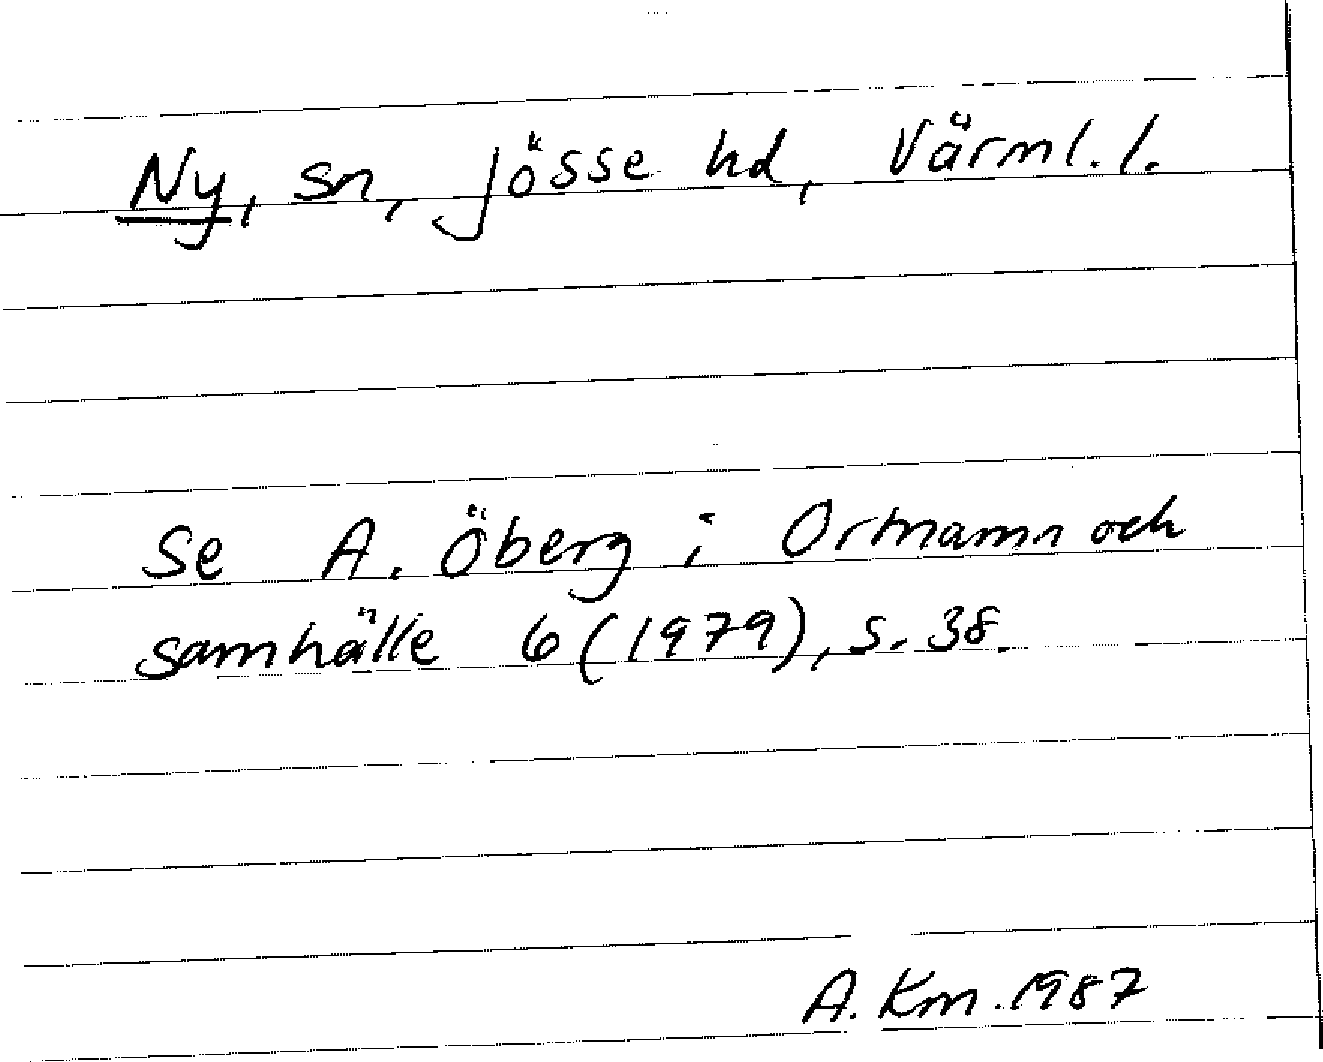 Ny, sn, Jösse hd, Värml. l.
Se A. Öberg i Ortnamn och
samhälle 6 (1979), s. 38.
A. Km. 1987